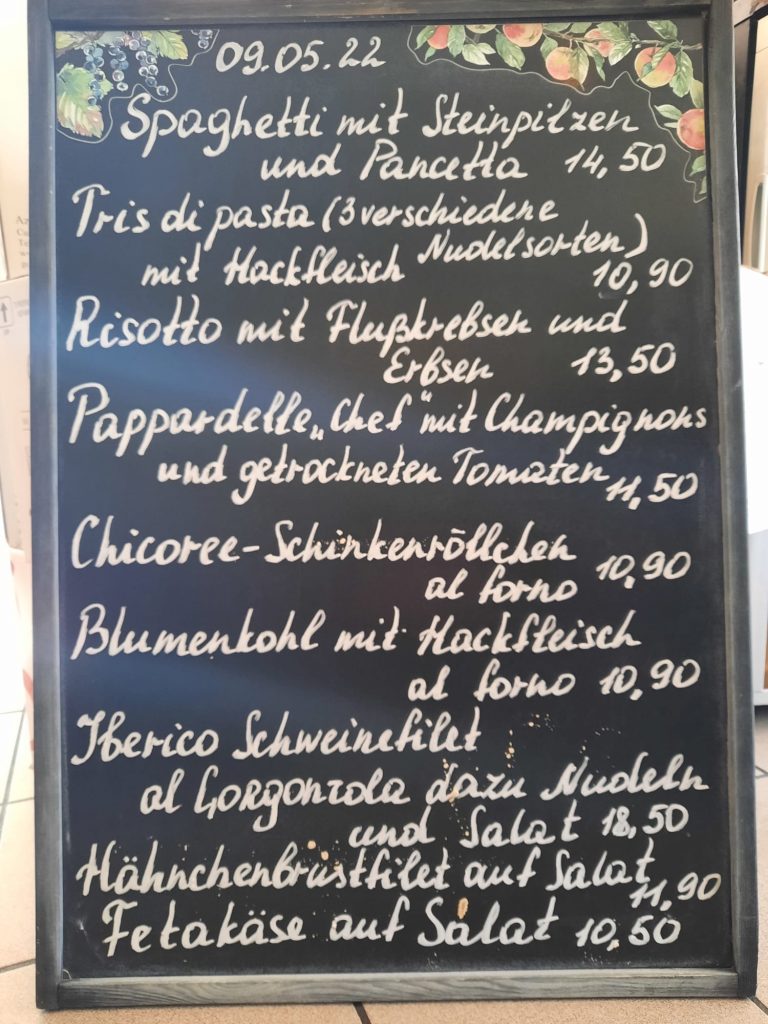 09.05.22
Spaghetti mit Steinpilzen
und Pancetta 14,50
Tris di pasta (3 verschiedene
Nudelsorten)
mit Hackfleisch 10,90
Risotto mit Flußkrebsen und
Erbsen 13,50
Pappardelle „Chef“ mit Champignons
und getrockneten Tomaten 11,50
Chicoree-Schinkenröllchen
al forno 10,90
Blumenkohl mit Hackfleisch
al forno 10,90
Iberico Schweinefilet
al Gorgonzola dazu Nudeln
und Salat 18,50
Hähnchenbrustfilet auf Salat
11,90
Fetakäse auf Salat 10,50